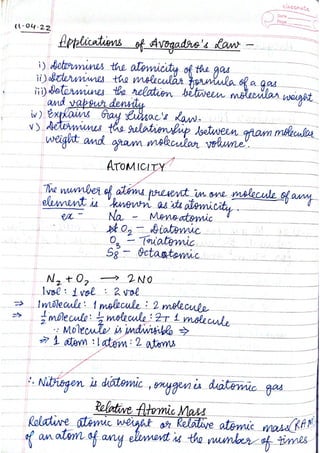 Classmate
Date
Page
11-04-22
Applications of Avogadro's Law -
i) Determines the atomicity of the gas
ii) Determines the molecular formula of a gas
iii) Determines the relation between molecular weight
and vapour density
iv) Explains Gay Lussac's Law.
v) Determines the relationship between gram molecular
weight and gram molecular volume.
ATOMICITY
The number of atoms present in one molecule of any
element is known as its atomicity.
ex - Na - Monoatomic
O₂ - Diatomic
O₃ - Triatomic
S₈ - Octaatomic
N₂ + O₂ → 2NO
1vol : 1vol : 2vol
⇒ 1 molecule : 1 molecule : 2 molecule
⇒ ½ molecule : ½ molecule : 1 molecule
∵ Molecule is indivisible ⇒
⇒ 1 atom : 1 atom : 2 atoms
∴ Nitrogen is diatomic, oxygen is diatomic gas
Relative Atomic Mass
Relative atomic weight or Relative atomic mass (RAM)
of an atom of any element is the number of times